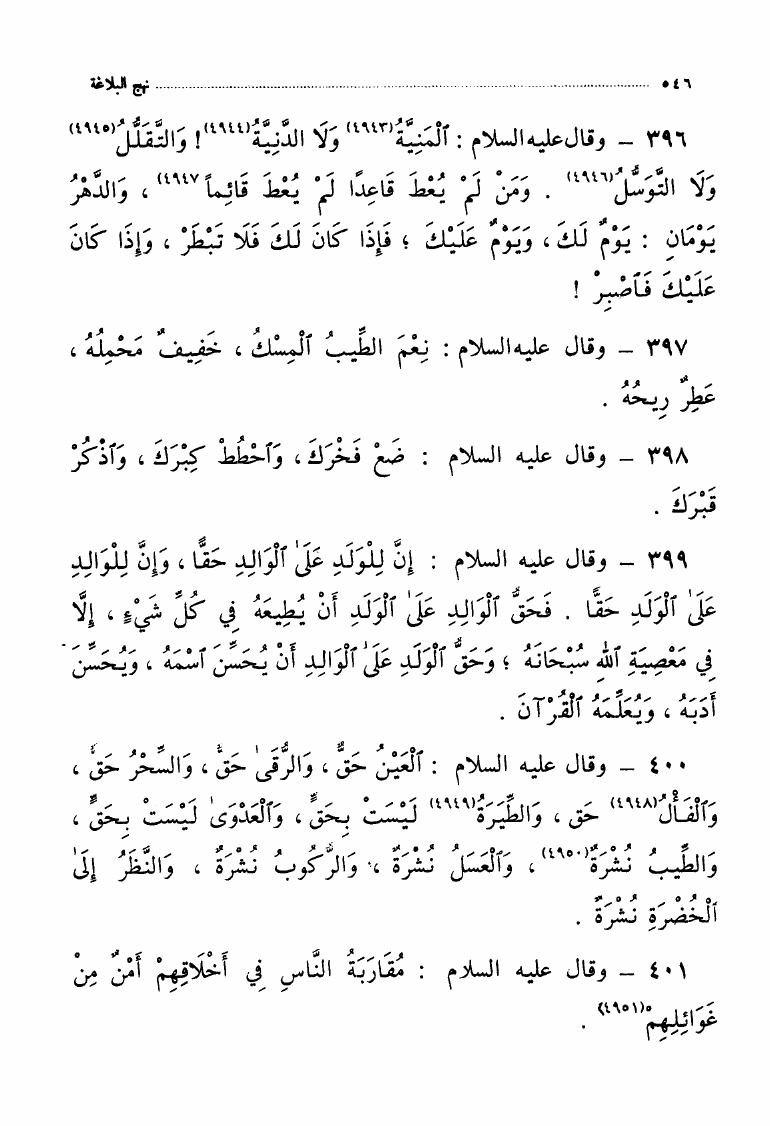 ٥٤٦ ........................ نهج البلاغة
٣٩٦ – وقال عليه السلام : ٱلْمَنِيَّةُ(٤٩٤٣) وَلَا الدَّنِيَّةُ(٤٩٤٤)! وَالتَّقَلُّلُ(٤٩٤٥)
وَلَا التَّوَسُّلُ(٤٩٤٦) . وَمَنْ لَمْ يُعْطَ قَاعِدًا لَمْ يُعْطَ قَائِماً(٤٩٤٧) ، وَالدَّهْرُ
يَوْمَانِ : يَوْمٌ لَكَ ، وَيَوْمٌ عَلَيْكَ ؛ فَإِذَا كَانَ لَكَ فَلَا تَبْطَرْ ، وَإِذَا كَانَ
عَلَيْكَ فَٱصْبِرْ !
٣٩٧ – وقال عليه السلام : نِعْمَ الطِّيبُ ٱلْمِسْكُ ، خَفِيفٌ مَحْمِلُهُ ،
عَطِرٌ رِيحُهُ .
٣٩٨ – وقال عليه السلام : ضَعْ فَخْرَكَ ، وَٱحْطُطْ كِبْرَكَ ، وَٱذْكُرْ
قَبْرَكَ .
٣٩٩ – وقال عليه السلام : إِنَّ لِلْوَلَدِ عَلَىٰ ٱلْوَالِدِ حَقًّا ، وَإِنَّ لِلْوَالِدِ
عَلَىٰ ٱلْوَلَدِ حَقًّا . فَحَقُّ ٱلْوَالِدِ عَلَىٰ ٱلْوَلَدِ أَنْ يُطِيعَهُ فِي كُلِّ شَيْءٍ ، إِلَّا
فِي مَعْصِيَةِ ٱللهِ سُبْحَانَهُ ؛ وَحَقُّ ٱلْوَلَدِ عَلَىٰ ٱلْوَالِدِ أَنْ يُحَسِّنَ ٱسْمَهُ ، وَيُحَسِّنَ
أَدَبَهُ ، وَيُعَلِّمَهُ ٱلْقُرْآنَ .
٤٠٠ – وقال عليه السلام : ٱلْعَيْنُ حَقٌّ ، وَالرُّقَىٰ حَقٌّ ، وَالسِّحْرُ حَقٌّ ،
وَٱلْفَأْلُ(٤٩٤٨) حَق ، وَالطِّيَرَةُ(٤٩٤٩) لَيْسَتْ بِحَقٍّ ، وَٱلْعَدْوَىٰ لَيْسَتْ بِحَقٍّ ،
وَالطِّيبُ نُشْرَةٌ(٤٩٥٠) ، وَٱلْعَسَلُ نُشْرَةٌ ، وَالرُّكُوبُ نُشْرَةٌ ، وَالنَّظَرُ إِلَىٰ
ٱلْخُضْرَةِ نُشْرَةٌ .
٤٠١ – وقال عليه السلام : مُقَارَبَةُ النَّاسِ فِي أَخْلَاقِهِمْ أَمْنٌ مِنْ
غَوَائِلِهِمْ(٤٩٥١) .